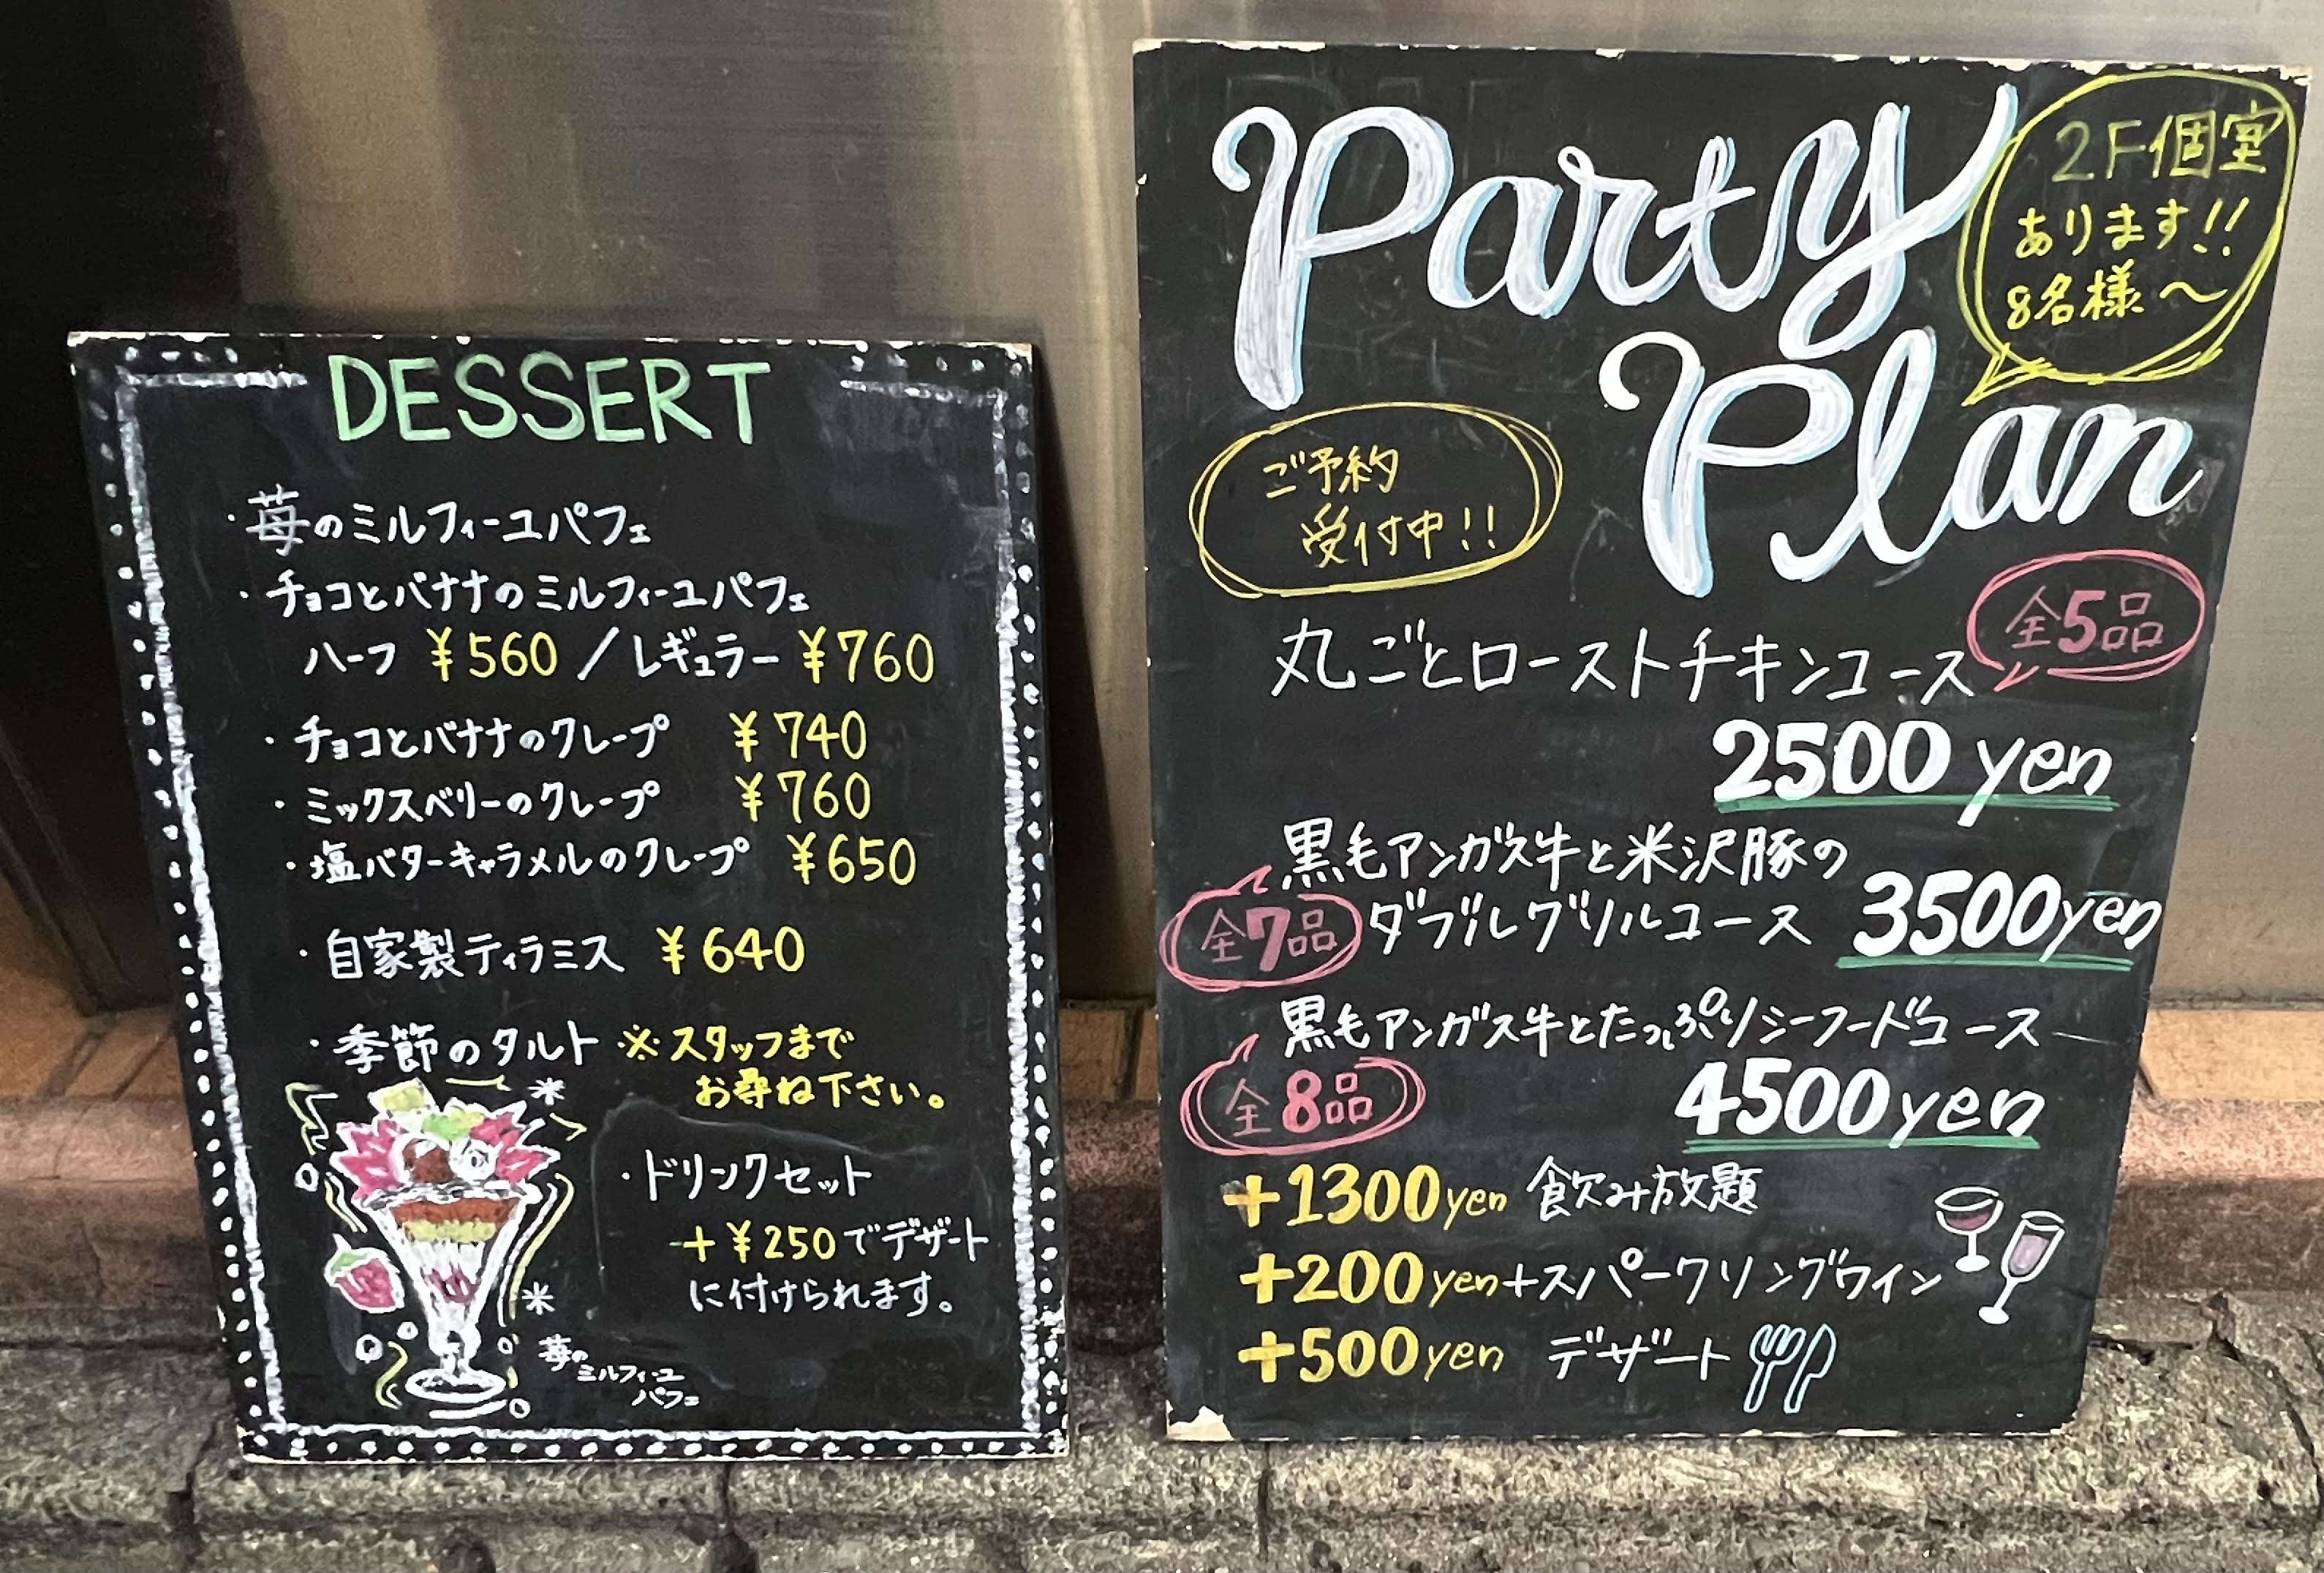 DESSERT
・苺のミルフィーユパフェ
・チョコとバナナのミルフィーユパフェ
ハーフ ¥560 / レギュラー ¥760
・チョコとバナナのクレープ ¥740
・ミックスベリーのクレープ ¥760
・塩バターキャラメルのクレープ ¥650
・自家製ティラミス ¥640
・季節のタルト ※スタッフまで
お尋ね下さい。
・ドリンクセット
+¥250でデザート
に付けられます。
苺の
ミルフィーユ
パフェ
Party
Plan
2F個室
あります!!
8名様～
ご予約
受付中!!
全5品
丸ごとローストチキンコース
2500 yen
黒毛アンガス牛と米沢豚の
全7品 ダブルグリルコース 3500yen
黒毛アンガス牛とたっぷりシーフードコース
全8品 4500yen
+1300yen 飲み放題
+200yen+スパークリングワイン
+500yen デザート